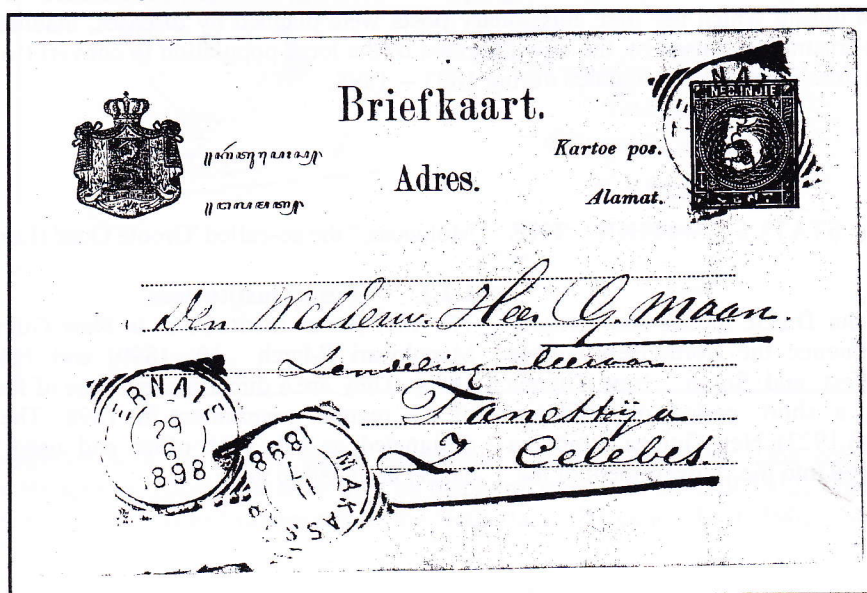 Briefkaart.
Adres.
Kartoe pos.
Alamat.
NED. INDIE
5
NA
Den Weleerw. Heer G. Maan.
Zendeling-leeraar
Tanetteya
Z. Celebes.
ERNATE
29
6
1898
MAKASS
11
7
1898